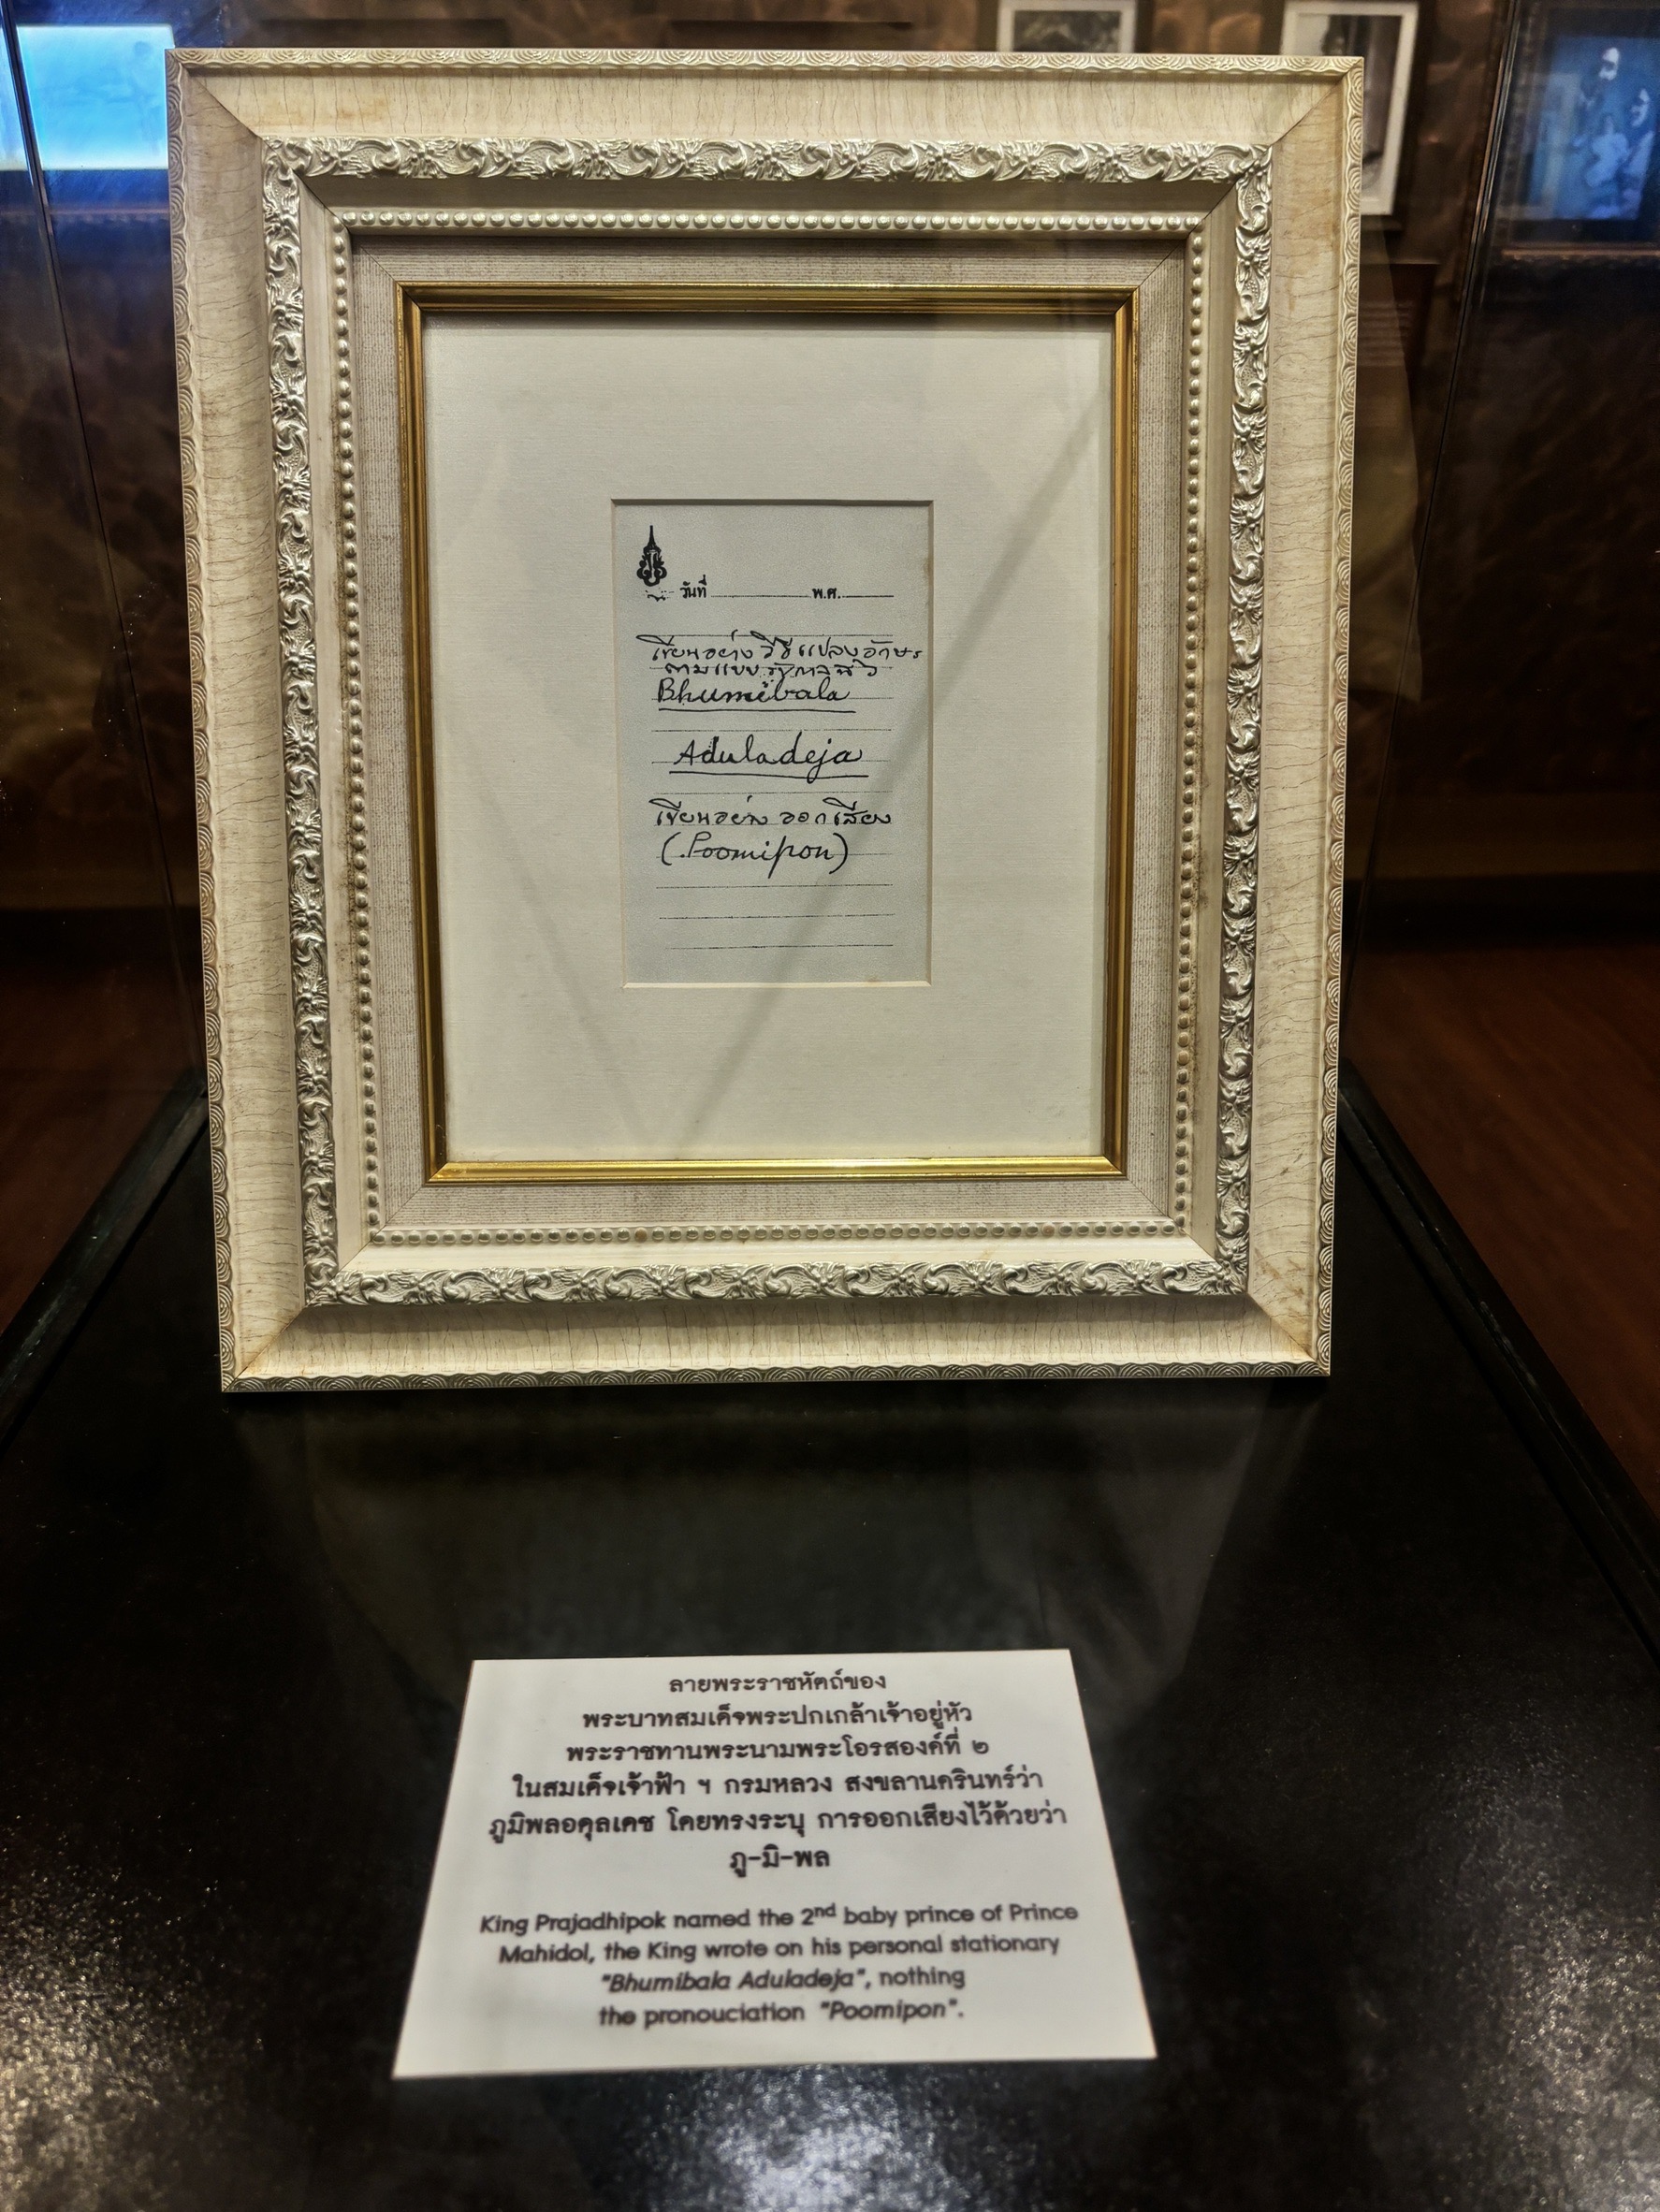 วันที่ พ.ศ.
เขียนอย่างวิธีแปลงอักษร
ตามแบบ
Bhumibala
Aduladeja
เขียนอย่าง ออกเสียง
(Poomipon)
ลายพระราชหัตถ์ของ
พระบาทสมเด็จพระปกเกล้าเจ้าอยู่หัว
พระราชทานพระนามพระโอรสองค์ที่ ๒
ในสมเด็จเจ้าฟ้า ฯ กรมหลวง สงขลานครินทร์ว่า
ภูมิพลอดุลเดช โดยทรงระบุ การออกเสียงไว้ด้วยว่า
ภู-มิ-พล
King Prajadhipok named the 2nd baby prince of Prince
Mahidol, the King wrote on his personal stationary
"Bhumibala Aduladeja", nothing
the pronouciation "Poomipon".